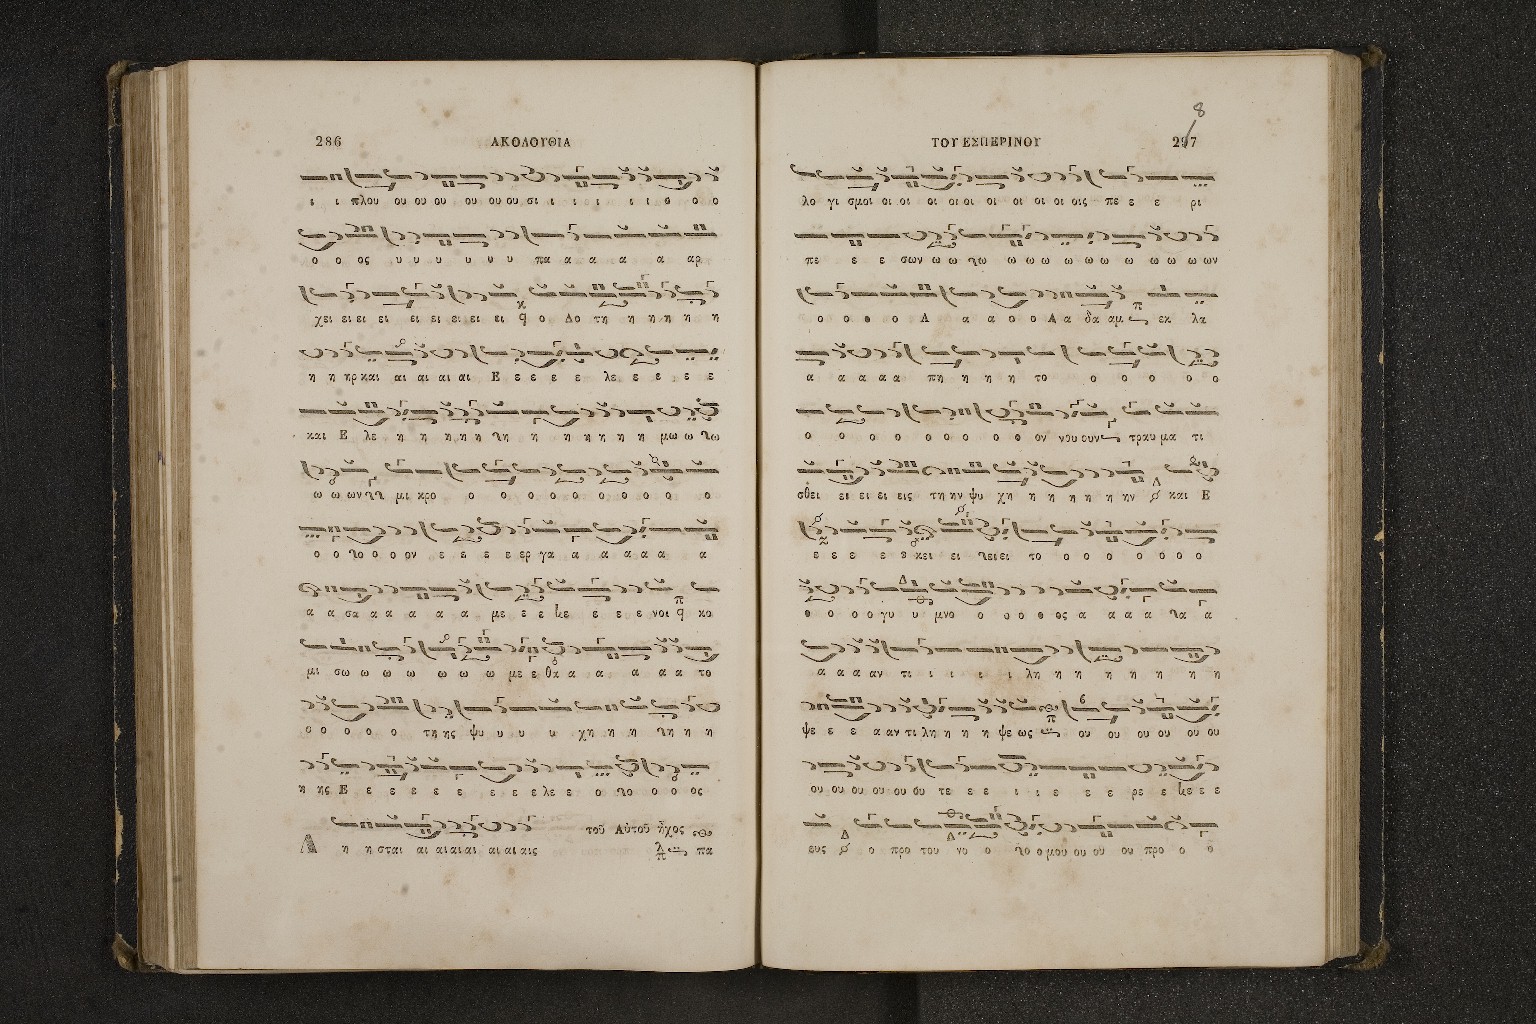 286 ΑΚΟΛΟΥΘΙΑ
ι ι πλου ου ου ου ου ου ου σι ι ι ι ι ι ο ο ο
ο ο ος υ υ υ υ υ υ πα α α α α αρ
χει ει ει ει ει ει ει ει ει ο Δο τη η η η η η
η η ηρ και αι αι αι αι Ε ε ε ε ε λε ε ε ε ε
και Ε λε η η η η η η η η η η η μω ω
ω ω ων μι κρο ο ο ο ο ο ο ο ο ο
ο ο ο ο ο ον ε ε ε ε ερ γα α α α α α α
α α σα α α α α α με ε ε ε ε ε νοι κο
μι σω ω ω ω ω ω ω με ε θα α α α α α το
ο ο ο ο ο τη ης ψυ υ υ υ χη η η η η
η ης Ε ε ε ε ε ε ε ε ε λε ε ο ο ο ος
Λ η η σται αι αι αι αι αι αι αις τοῦ Αὐτοῦ ἦχος πα
ΤΟΥ ΕΣΠΕΡΙΝΟΥ 297
8
λο γι σμοι οι οι οι οι οι οι οι οι οι οις πε ε ε ρι
πε ε ε σων ω ω ω ω ω ω ω ω ω ω ω ων
ο ο ο ο Α α α ο ο Α α δα αμ εκ λα
α α α α α πη η η η το ο ο ο ο ο
ο ο ο ο ο ο ο ο ο ον νου ουν τραυ μα τι
σθει ει ει ει εις τη ην ψυ χη η η η η η ην και Ε
ε ε ε ε ε κει ει ει ει το ο ο ο ο ο ο ο
ο ο ο ο γυ υ μνο ο ο ο ο ος α α α α α
α α α αν τι ι ι ι ι λη η η η η η η η
ψε ε ε α αν τι λη η η η ψε ως ου ου ου ου ου ου
ου ου ου ου ου ου τε ε ε ι ι ε ε ε ρε ε ε ε
ευς ο προ του νο ο ο μου ου ου ου προ ο ο